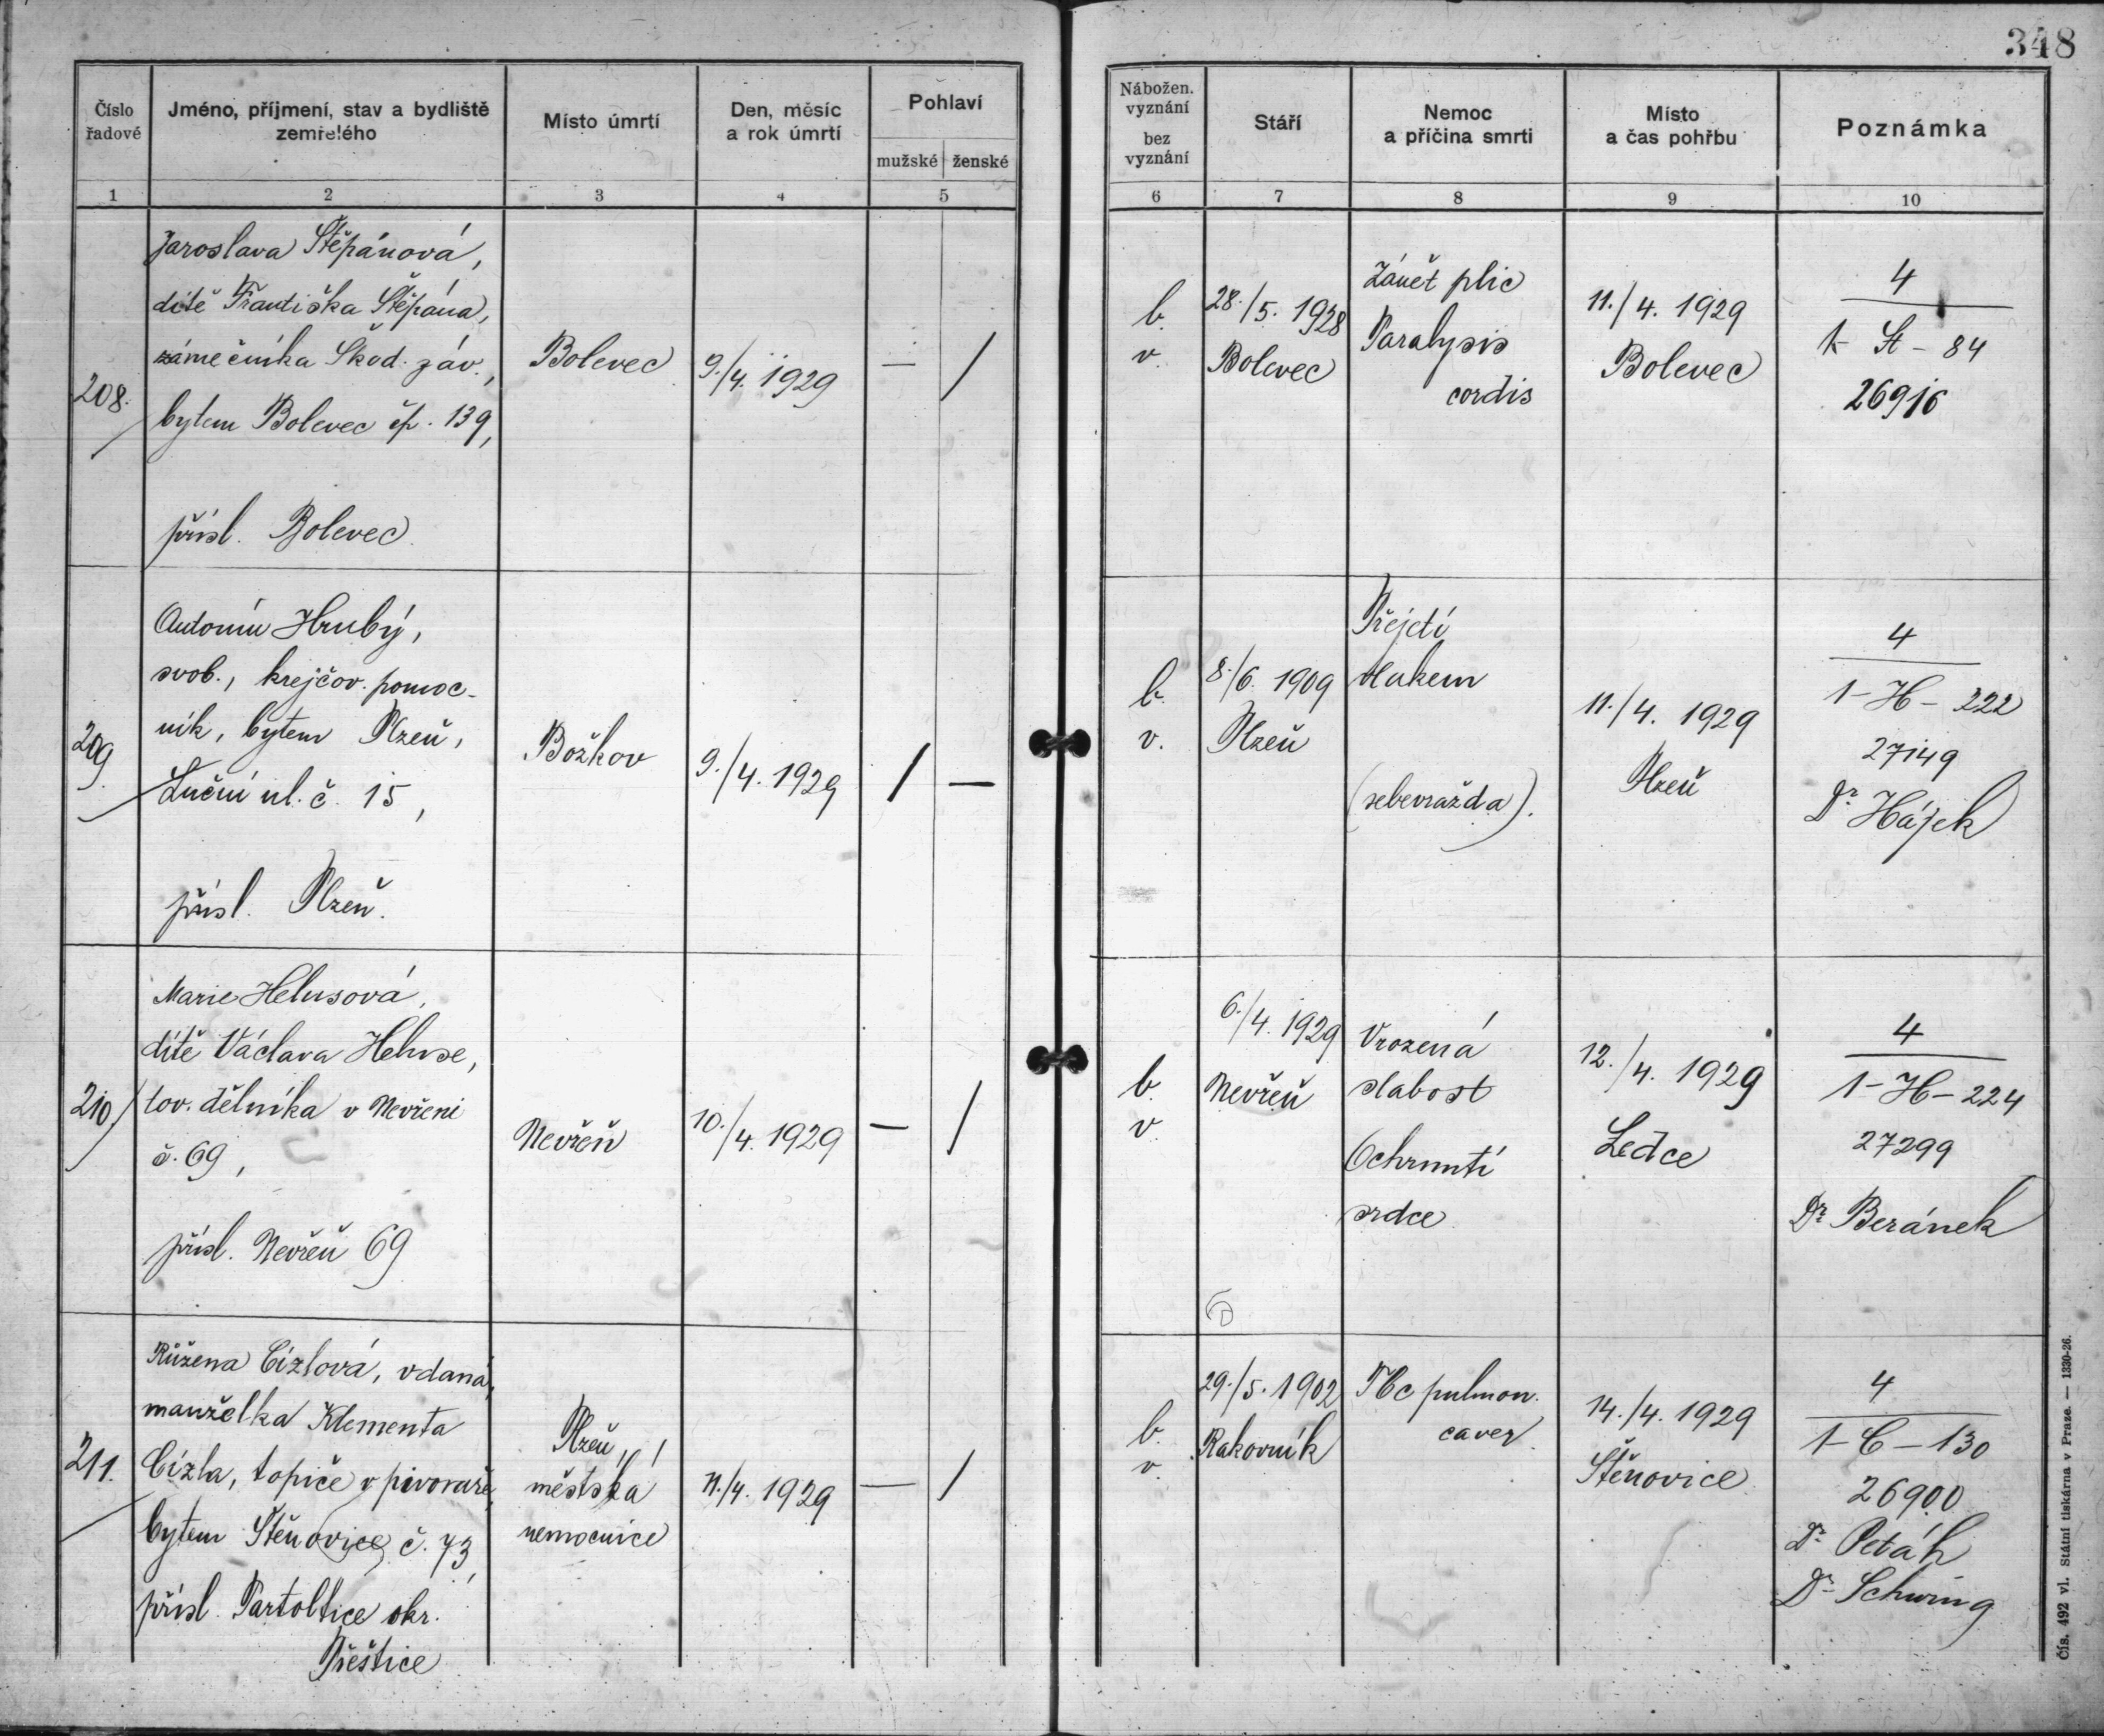 348
Číslo řadové
Jméno, příjmení, stav a bydliště zemřelého
Místo úmrtí
Den, měsíc a rok úmrtí
Pohlaví
mužské ženské
Nábožen. vyznání
bez vyznání
Stáří
Nemoc a příčina smrti
Místo a čas pohřbu
Poznámka
1 2 3 4 5 6 7 8 9 10
208.
Jaroslava Štěpánová,
dítě Františka Štěpána,
zámečníka Škod. záv.,
bytem Bolevec čp. 139,
přísl. Bolevec
Bolevec
9./4. 1929
— /
b.
v.
28./5. 1928
Bolevec
Zánět plic
Paralysis
cordis
11./4. 1929
Bolevec
4
1- St - 84
26916
209.
Antonín Hrubý,
svob., krejčov. pomoc-
ník, bytem Plzeň,
Luční ul. č. 15,
přísl. Plzeň.
Božkov
9./4. 1929
/ —
b.
v.
8./6. 1909
Plzeň
Přejetí
vlakem
(sebevražda).
11./4. 1929
Plzeň
4
1- H - 222
27149
Dr. Hájek
210.
Marie Helusová,
dítě Václava Heluse,
tov. dělníka v Nevřeni
č. 69,
přísl. Nevřeň 69
Nevřeň
10./4. 1929
— /
b.
v.
6./4. 1929
Nevřeň
Vrozená
slabost
Ochrnutí
srdce
12./4. 1929
Ledce
4
1- H - 224
27299
Dr. Beránek
211.
Růžena Cízlová, vdaná,
manželka Klementa
Cízla, topiče v pivovaře,
bytem Štěnovice č. 73,
přísl. Partoltice okr.
Přeštice
Plzeň,
městská
nemocnice
11./4. 1929
— /
b.
v.
29./5. 1902
Rakovník
Tbc pulmon.
caver.
14./4. 1929
Štěnovice
4
1- C - 130
26900
Dr. Peták
Dr. Schwing
Čís. 492 vl. Státní tiskárna v Praze. — 1330-26.